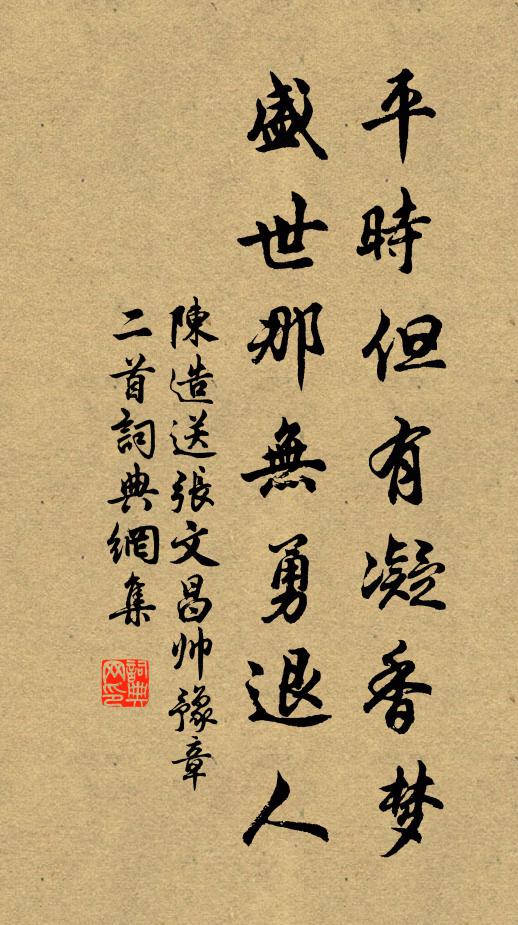 平時但有凝香梦
盛世那無勇退人
陳造送張文昌帅豫章
二首詞典網集
詞典
网印